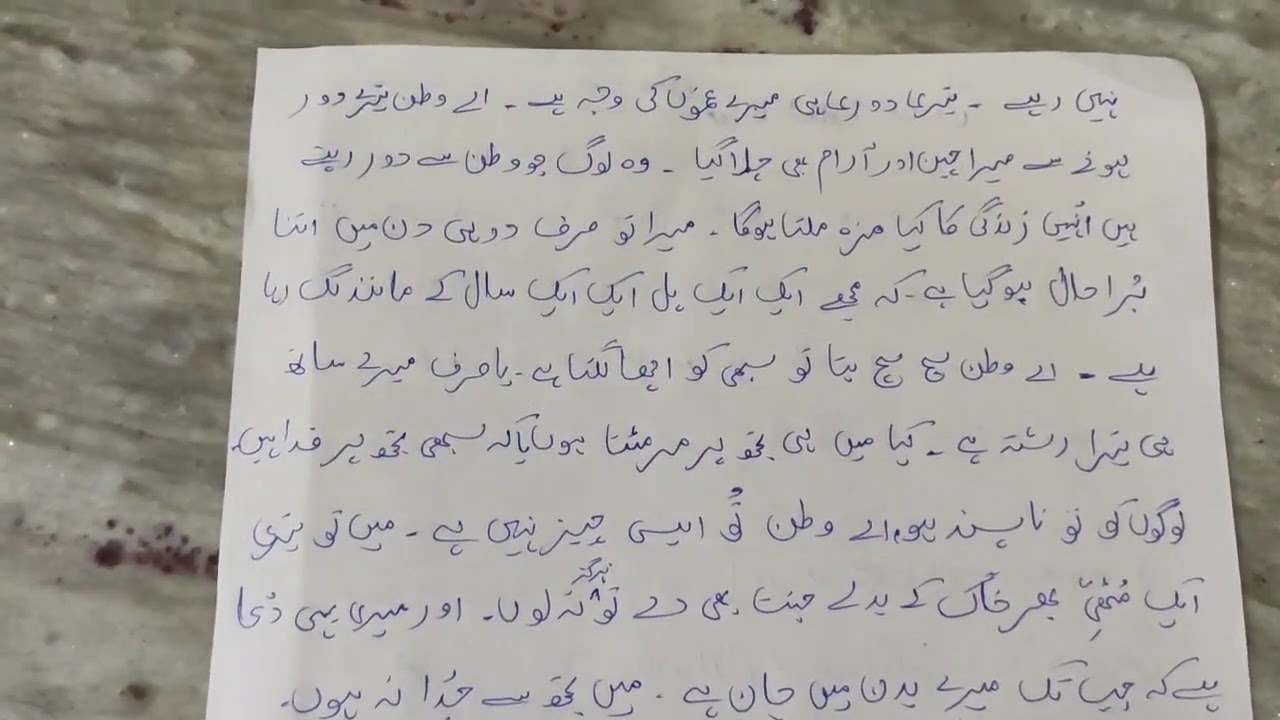 نہیں رہے ۔ تیری دوری ہی میرے غموں کی وجہ ہے ۔ اے وطن تیرے دور
ہونے سے میرا چین اور آرام ہی چلا گیا ۔ وہ لوگ جو وطن سے دور رہتے
ہیں اُنہیں زندگی کا کیا مزہ ملتا ہوگا ۔ میرا تو صرف دو ہی دن میں اتنا
بُرا حال ہوگیا ہے ۔ کہ مجھے ایک ایک پل ایک ایک سال کے مانند لگ رہا
ہے ۔ اے وطن سچ سچ بتا تو سبھی کو اچھا لگتا ہے ۔ یا صرف میرے ساتھ
ہی تیرا رشتہ ہے ۔ کیا میں ہی تجھ پر مرمٹتا ہوں یا کہ سبھی تجھ پر فدا ہیں ۔
لوگوں کو تو ناپسند ہو، اے وطن تُو ایسی چیز نہیں ہے ۔ میں تو تیری
ایک مُٹھی بھر خاک کے بدلے جنت بھی دے تو ہرگز نہ لوں ۔ اور میری یہی دُعا
ہے کہ جب تک میرے بدن میں جان ہے ۔ میں تجھ سے جُدا نہ ہوں ۔